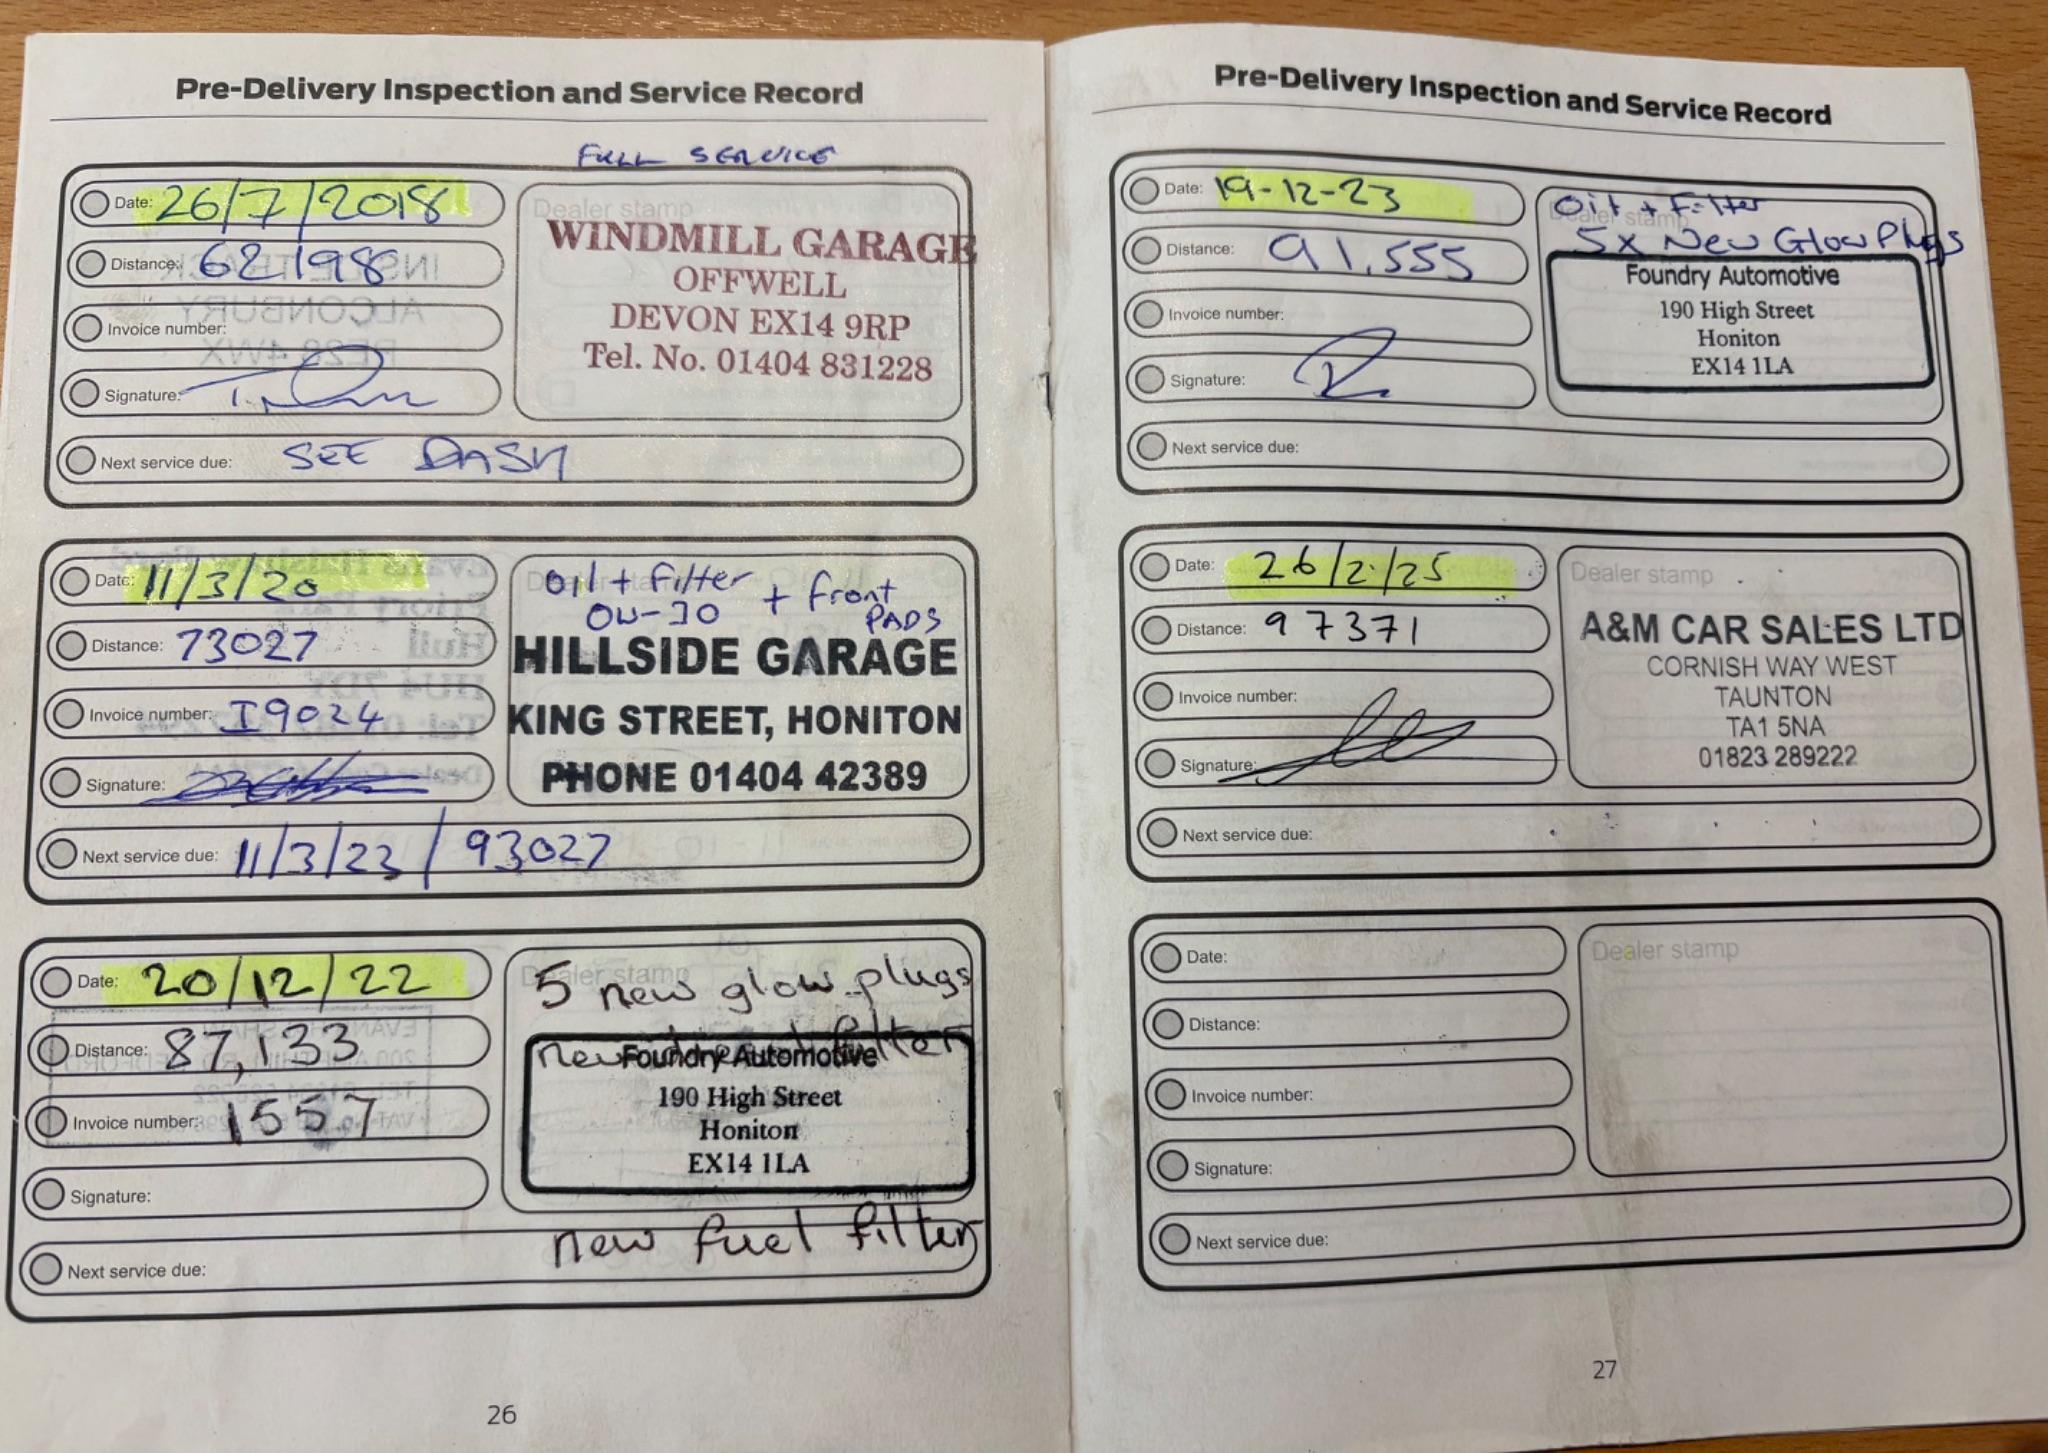 Pre-Delivery Inspection and Service Record
FULL SERVICE
Date: 26/7/2018
Distance: 62198
Invoice number:
Signature:
Next service due: SEE DASH
Dealer stamp
WINDMILL GARAGE
OFFWELL
DEVON EX14 9RP
Tel. No. 01404 831228
Date: 11/3/20
Distance: 73027
Invoice number: I9024
Signature:
Next service due: 11/3/23 / 93027
Dealer stamp
Oil + Filter + Front
PADS
HILLSIDE GARAGE
KING STREET, HONITON
PHONE 01404 42389
Date: 20/12/22
Distance: 87,133
Invoice number: 1557
Signature:
Next service due:
Dealer stamp
5 new glow plugs
new filter
Foundry Automotive
190 High Street
Honiton
EX14 1LA
new fuel filter
26
Pre-Delivery Inspection and Service Record
Date: 19-12-23
Distance: 91,555
Invoice number:
Signature:
Next service due:
Dealer stamp
Oil + Filter
5x New Glow Plugs
Foundry Automotive
190 High Street
Honiton
EX14 1LA
Date: 26/2/25
Distance: 97371
Invoice number:
Signature:
Next service due:
Dealer stamp
A&M CAR SALES LTD
CORNISH WAY WEST
TAUNTON
TA1 5NA
01823 289222
Date:
Distance:
Invoice number:
Signature:
Next service due:
Dealer stamp
27